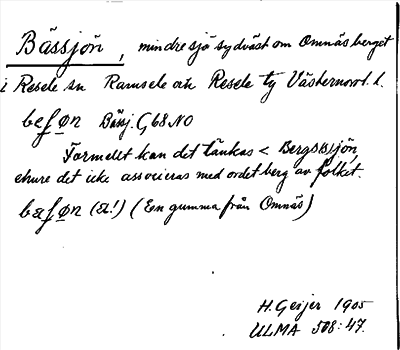 Bässjön, mindre sjö sydväst om Omnäsberget
i Resele sn Ramsele och Resele tg Västernorrl. l.
beʃøn Bäsj. G68 NO
Formellt kan det tänkas < Bergssjön,
ehuru det icke associeras med ordet berg av folket.
bɛʃøn (ɛ!) (En gumma från Omnäs)
H. Geijer 1905
ULMA 508:47.